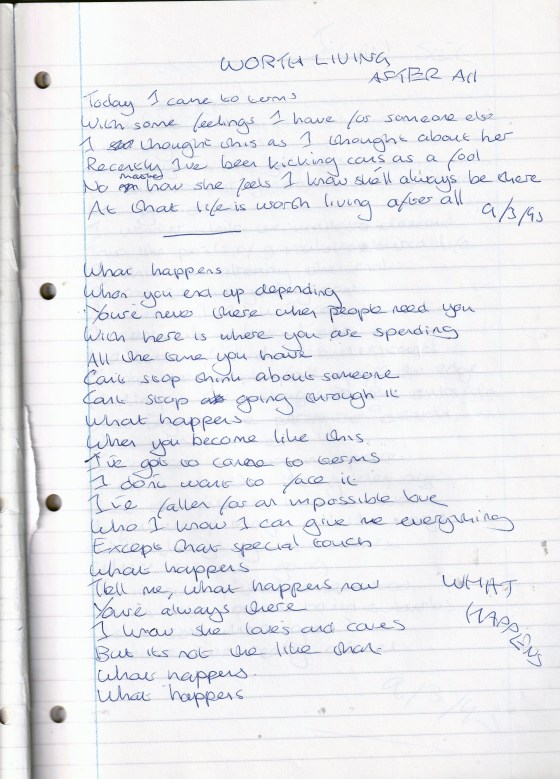 WORTH LIVING
AFTER All
Today I came to terms
With some feelings I have for someone else
I thought this as I thought about her
Recently I've been kicking cars as a fool
No matter how she feels I know she'll always be there
At that life is worth living after all
9/3/93
What happens
When you end up depending
You're never there when people need you
With here is where you are spending
All the time you have
Can't stop think about someone
Can't stop going through it
What happens
When you become like this
I've got to come to terms
I don't want to face it
I've fallen for an impossible love
Who I know I can give me everything
Except that special touch
What happens
Tell me, what happens now
You're always there
I know she loves and cares
But its not the like that
What happens.
What happens
WHAT
HAPPENS